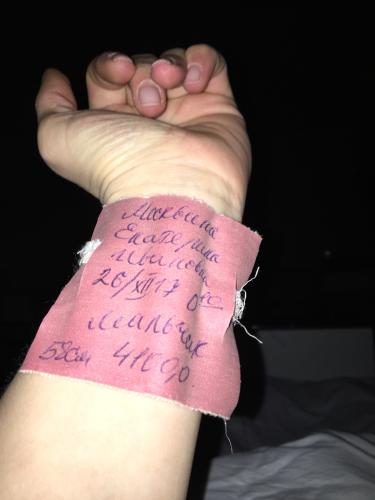 Москвина
Екатерина
Ивановна
26/XII 17 0 00
Мальчик
52см 4100,0